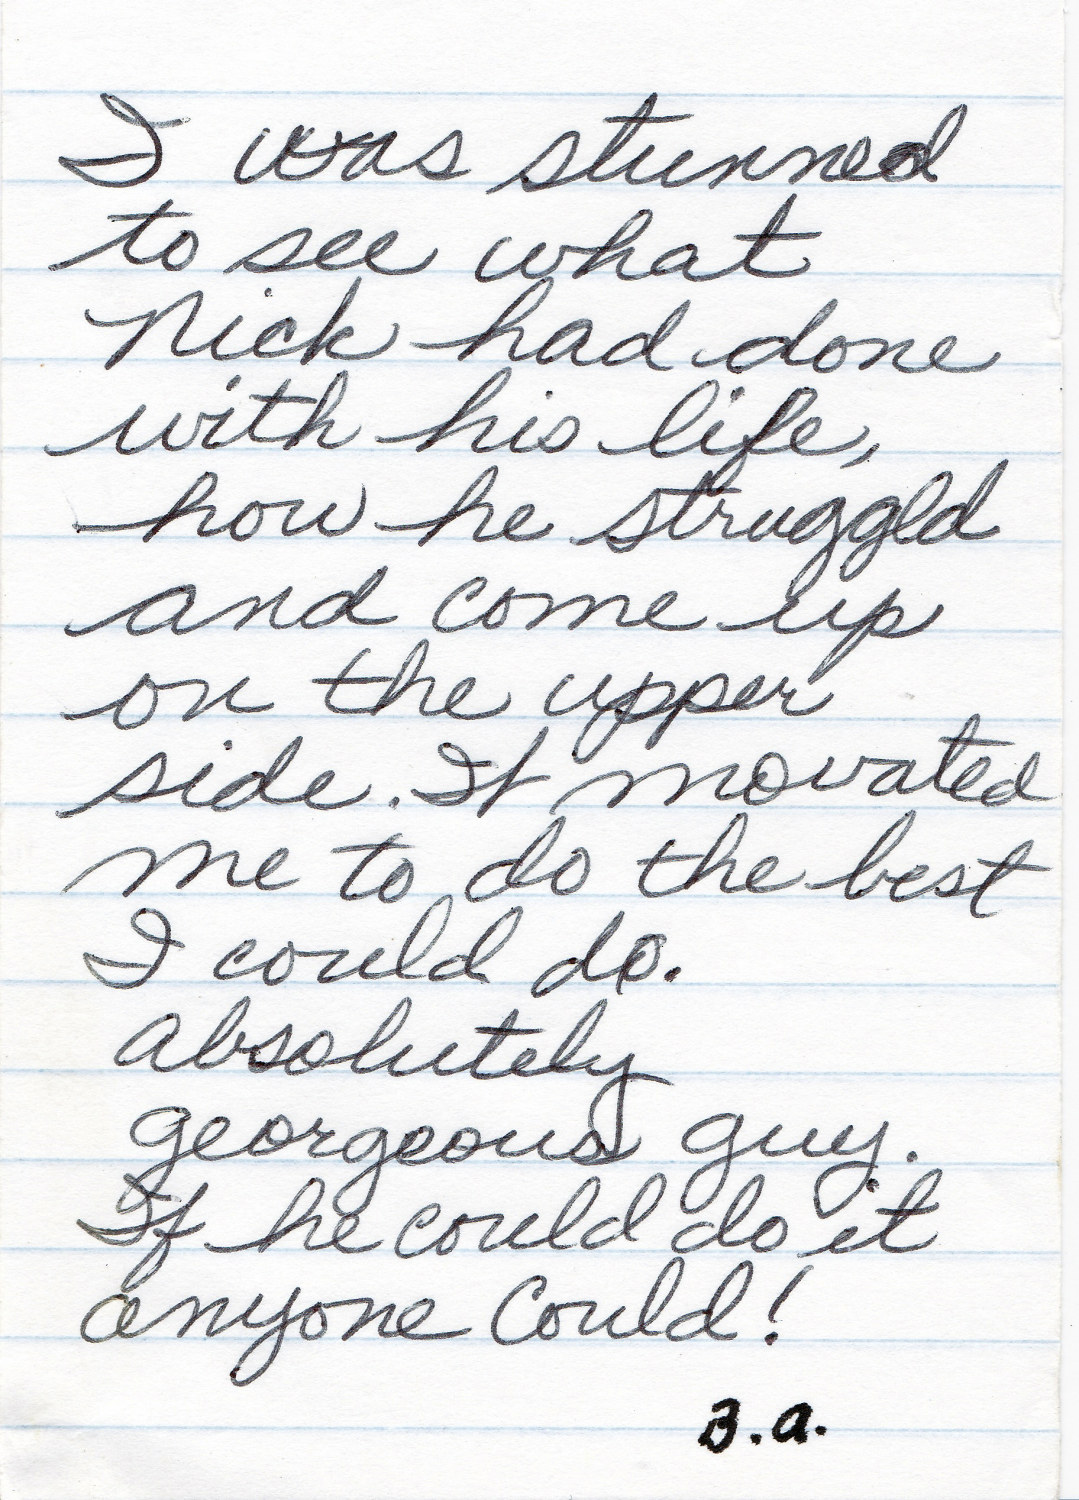 I was stunned
to see what
Nick had done
with his life,
how he struggld
and come up
on the upper
side. It movated
me to do the best
I could do.
absolutely
georgeous guy.
If he could do it
anyone could!
B.a.